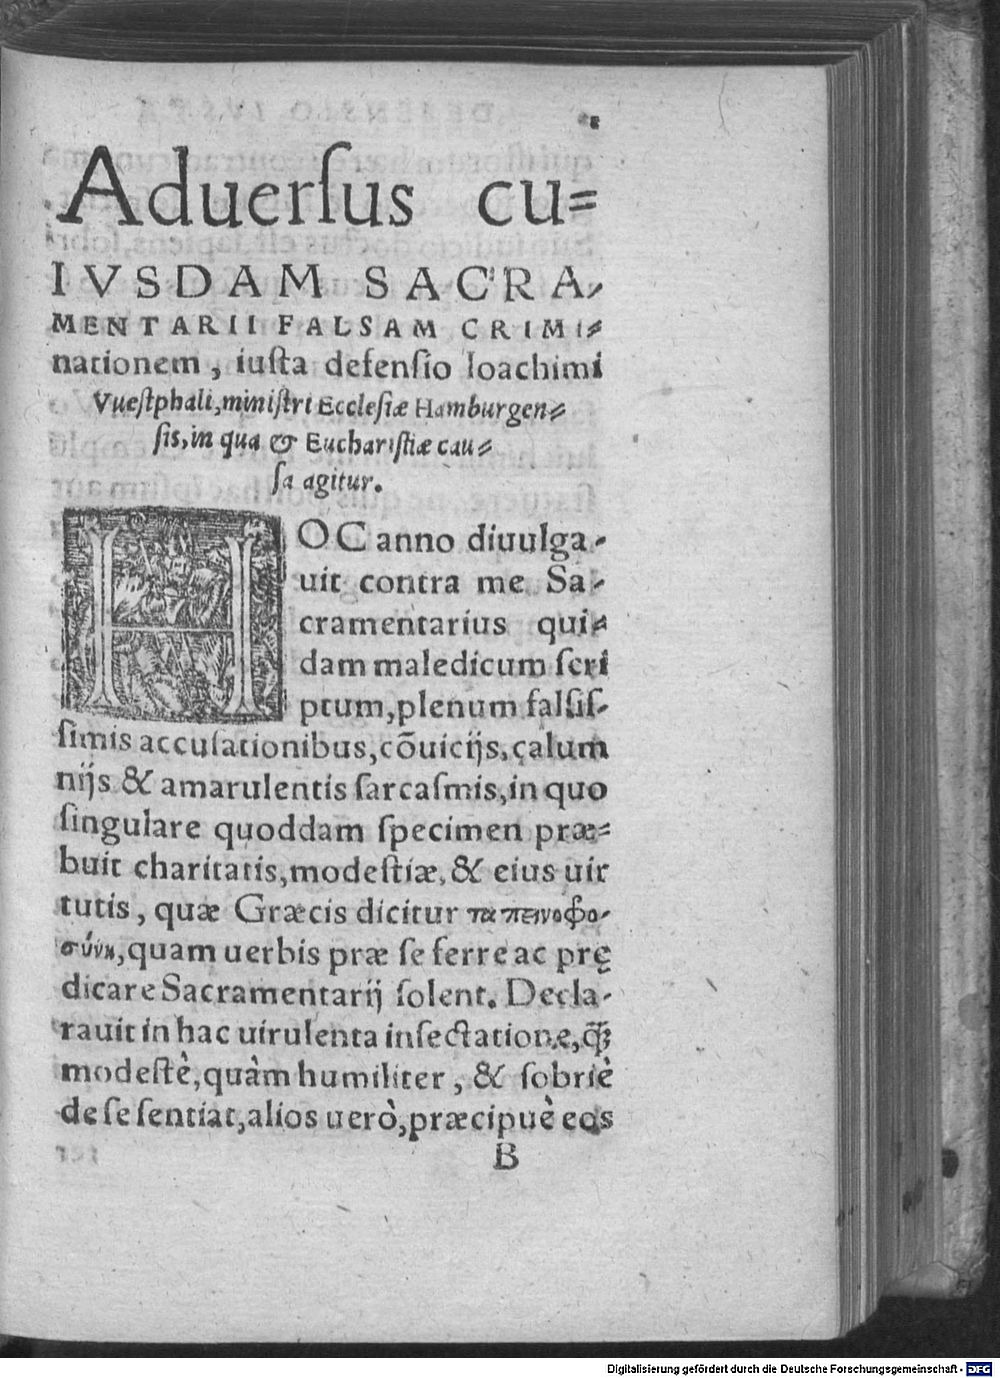 Aduerſus cu=
IVSDAM SACRA-
MENTARII FALSAM CRIMI=
nationem, iuſta defenſio Ioachimi
Vueſtphali, miniſtri Eccleſiæ Hamburgen=
ſis, in qua & Euchariſtiæ cau=
ſa agitur.
HOC anno diuulga-
uit contra me Sa-
cramentarius qui=
dam maledicum ſcri
ptum, plenum falſiſ-
ſimis accuſationibus, cõuicijs, calum
nijs & amarulentis ſarcaſmis, in quo
ſingulare quoddam ſpecimen præ=
buit charitatis, modeſtiæ, & eius uir
tutis, quæ Græcis dicitur ταπεινοφρο-
σύνη, quam uerbis præ ſe ferre ac prę
dicare Sacramentarij ſolent. Decla-
rauit in hac uirulenta inſectatione, ꝙ̃
modeſtè, quàm humiliter, & ſobriè
de ſe ſentiat, alios uerò, præcipuè eos
B
Digitalisierung gefördert durch die Deutsche Forschungsgemeinschaft - DFG